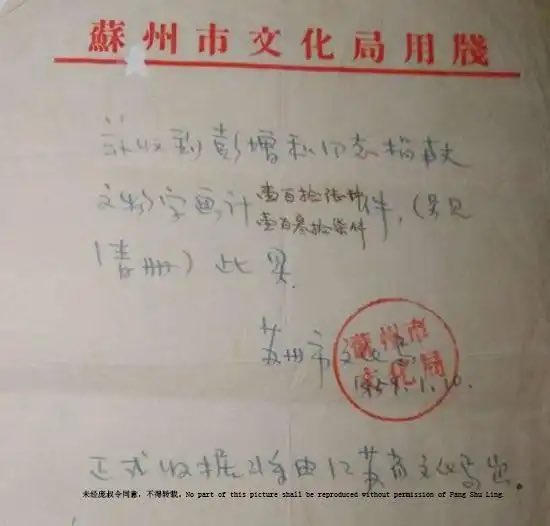 蘇州市文化局用牋
兹收到彭增和同志捐献
文物字画计 壹百拾伍种 件,(另见
壹百叁拾柒件
清册)此具.
苏州市文化局
蘇州市
文化局
1959.1.10.
正式收据将由江苏省文化局出.
未经庞叔令同意,不得转载。No part of this picture shall be reproduced without permission of Pang Shu Ling.